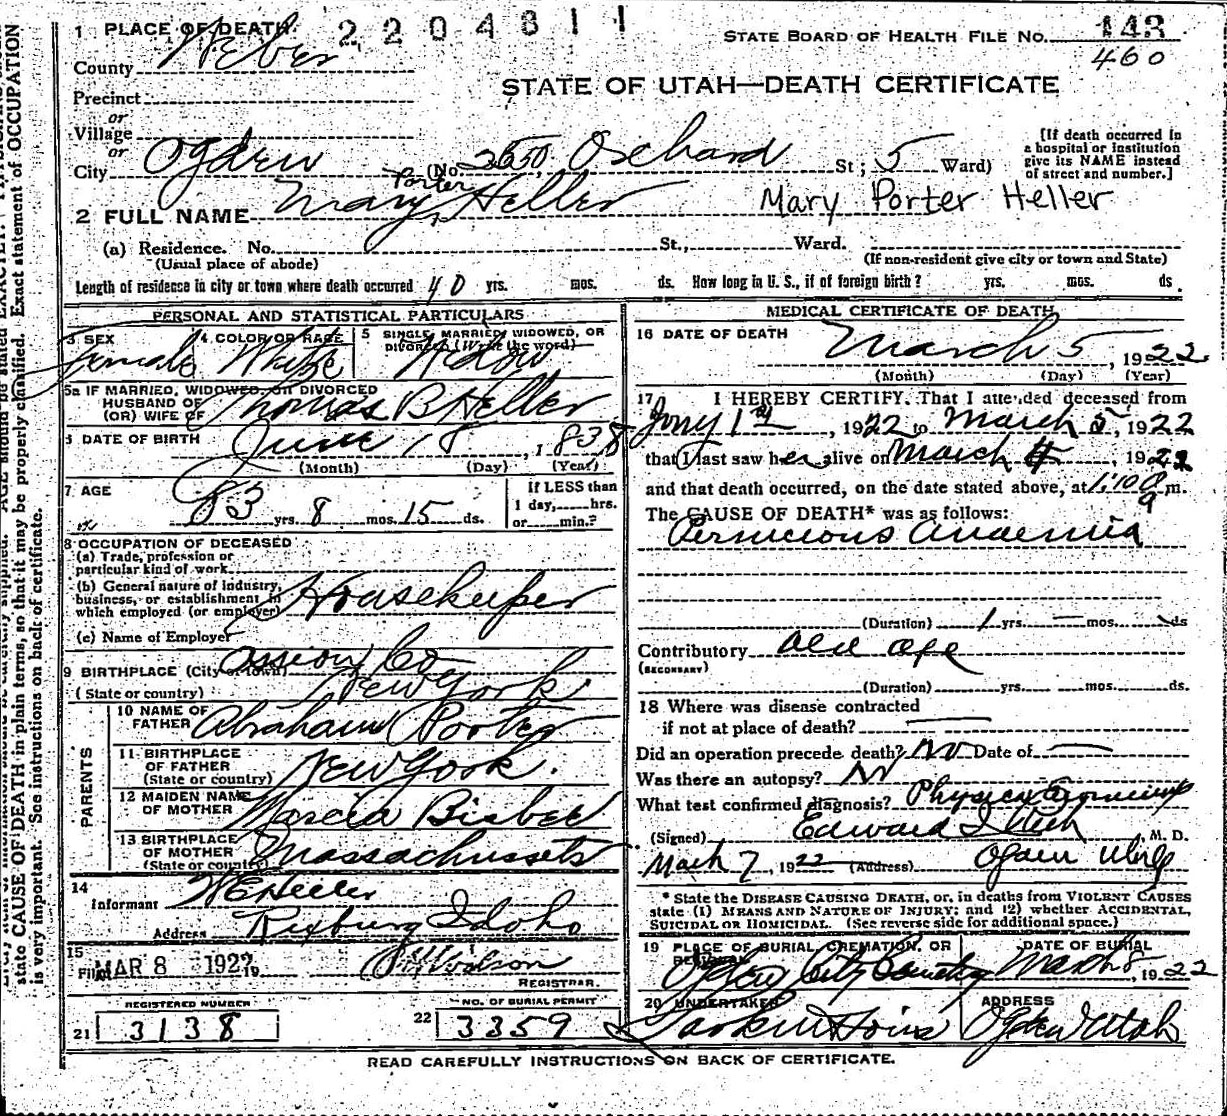 1 PLACE OF DEATH 2204811
STATE BOARD OF HEALTH FILE NO. 143
County Weber 460
STATE OF UTAH—DEATH CERTIFICATE
Precinct
or
Village
or
City Ogden (No. 2650 Orchard St; 5 Ward)
[If death occurred in
a hospital or institution
give its NAME instead
of street and number.]
Porter
2 FULL NAME Mary Heller Mary Porter Heller
(a) Residence. No. St., Ward.
(Usual place of abode) (If non-resident give city or town and State)
Length of residence in city or town where death occurred 40 yrs. mos. ds. How long in U. S., if of foreign birth? yrs. mos. ds.
PERSONAL AND STATISTICAL PARTICULARS
3 SEX 4 COLOR OR RACE 5 SINGLE, MARRIED, WIDOWED, OR
DIVORCED (Write the word)
Female White Widow
5a IF MARRIED, WIDOWED, OR DIVORCED
HUSBAND OF
(OR) WIFE OF Thomas B Heller
6 DATE OF BIRTH June 18, 1838
(Month) (Day) (Year)
7 AGE 83 yrs. 8 mos. 15 ds.
If LESS than
1 day, hrs.
or min.?
8 OCCUPATION OF DECEASED
(a) Trade, profession or
particular kind of work
(b) General nature of industry,
business, or establishment in
which employed (or employer) Housekeeper
(c) Name of Employer
9 BIRTHPLACE (City or town) Co
(State or country) New York
PARENTS
10 NAME OF
FATHER Abraham Porter
11 BIRTHPLACE
OF FATHER
(State or country) New York.
12 MAIDEN NAME
OF MOTHER Marcia Bisbee
13 BIRTHPLACE
OF MOTHER
(State or country) Massachussets
14
Informant W E Heller
Address Rexburg Idaho
15
Filed MAR 8 1922 19
REGISTRAR.
REGISTERED NUMBER NO. OF BURIAL PERMIT
21 3138 22 3359
MEDICAL CERTIFICATE OF DEATH
16 DATE OF DEATH March 5, 1922
(Month) (Day) (Year)
17 I HEREBY CERTIFY. That I attended deceased from
Jany 1st, 1922 to March 5, 1922
that I last saw her alive on March 4, 1922
and that death occurred, on the date stated above, at 1:10 a m.
The CAUSE OF DEATH* was as follows:
Pernicious Anaemia
(Duration) 1 yrs. — mos. ds
Contributory Old age
(SECONDARY)
(Duration) yrs. mos. ds.
18 Where was disease contracted
if not at place of death?
Did an operation precede death? No Date of —
Was there an autopsy? No
What test confirmed diagnosis? Physical
(Signed) Edward I , M. D.
March 7, 1922 (Address) Ogden
* State the DISEASE CAUSING DEATH, or, in deaths from VIOLENT CAUSES
state (1) MEANS AND NATURE OF INJURY; and (2) whether ACCIDENTAL,
SUICIDAL OR HOMICIDAL. (See reverse side for additional space.)
19 PLACE OF BURIAL, CREMATION, OR
REMOVAL DATE OF BURIAL
Ogden City Cemetery March 8 1922
20 UNDERTAKER ADDRESS
Larkin & Sons Ogden Utah
READ CAREFULLY INSTRUCTIONS ON BACK OF CERTIFICATE.
state CAUSE OF DEATH in plain terms, so that it may be properly classified. Exact statement of OCCUPATION
is very important. See instructions on back of certificate.